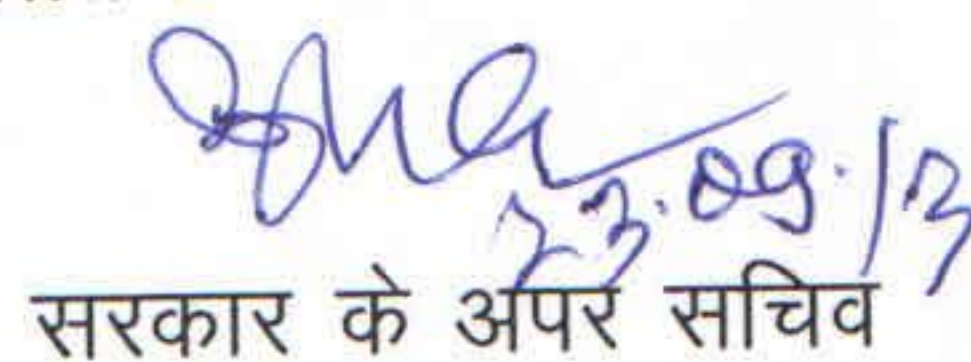 23.09.13
सरकार के अपर सचिव